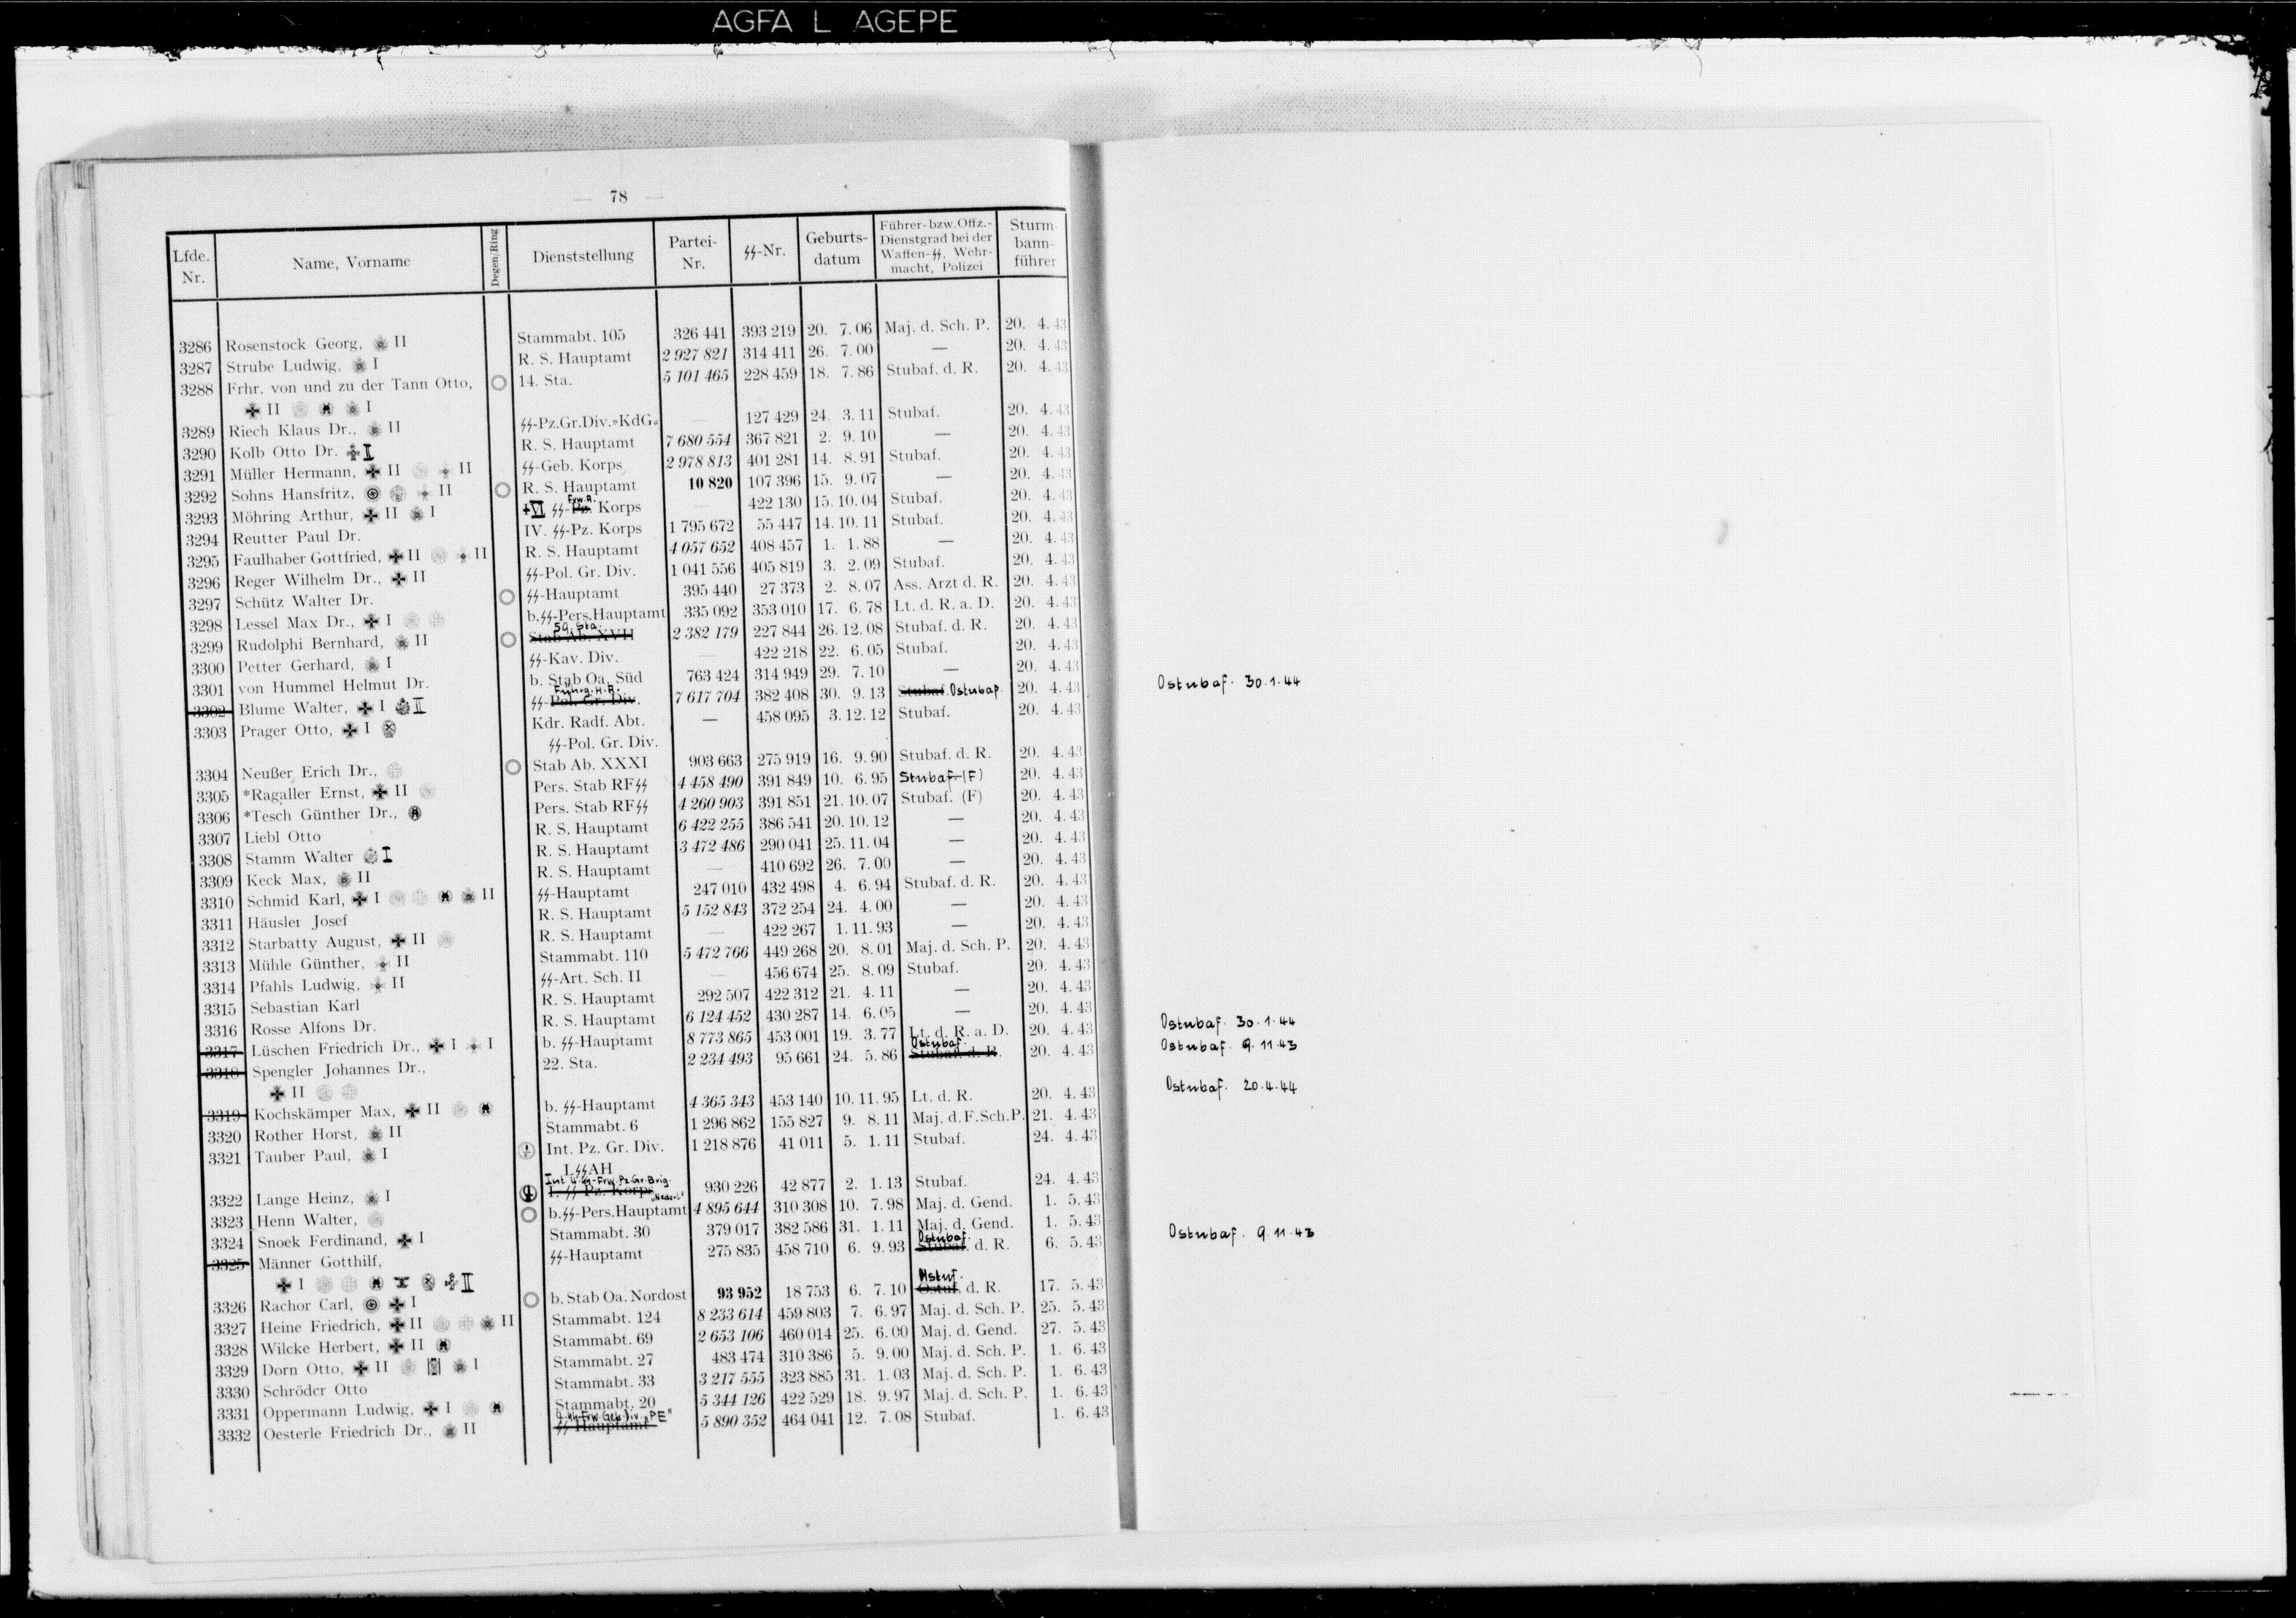 AGFA L AGEPE
— 78 —
Lfde. Nr. Name, Vorname Degen/Ring Dienststellung Partei-Nr. ᛋᛋ-Nr. Geburts-datum Führer- bzw. Offz.-Dienstgrad bei der Waffen-ᛋᛋ, Wehr-macht, Polizei Sturm-bann-führer
3286 Rosenstock Georg, II Stammabt. 105 326 441 393 219 20. 7. 06 Maj. d. Sch. P. 20. 4. 43
3287 Strube Ludwig, I R. S. Hauptamt 2 927 821 314 411 26. 7. 00 — 20. 4. 43
3288 Frhr. von und zu der Tann Otto, 14. Sta. 5 101 465 228 459 18. 7. 86 Stubaf. d. R. 20. 4. 43
II I
3289 Riech Klaus Dr., II ᛋᛋ-Pz.Gr.Div.»KdG« — 127 429 24. 3. 11 Stubaf. 20. 4. 43
3290 Kolb Otto Dr. II R. S. Hauptamt 7 680 554 367 821 2. 9. 10 — 20. 4. 43
3291 Müller Hermann, II II ᛋᛋ-Geb. Korps 2 978 813 401 281 14. 8. 91 Stubaf. 20. 4. 43
3292 Sohns Hansfritz, II R. S. Hauptamt 10 820 107 396 15. 9. 07 — 20. 4. 43
3293 Möhring Arthur, II I VI ᛋᛋ-Pz. Frw.A. Korps — 422 130 15. 10. 04 Stubaf. 20. 4. 43
3294 Reutter Paul Dr. IV. ᛋᛋ-Pz. Korps 1 795 672 55 447 14. 10. 11 Stubaf. 20. 4. 43
3295 Faulhaber Gottfried, II II R. S. Hauptamt 4 057 652 408 457 1. 1. 88 — 20. 4. 43
3296 Reger Wilhelm Dr., II ᛋᛋ-Pol. Gr. Div. 1 041 556 405 819 3. 2. 09 Stubaf. 20. 4. 43
3297 Schütz Walter Dr. ᛋᛋ-Hauptamt 395 440 27 373 2. 8. 07 Ass. Arzt d. R. 20. 4. 43
3298 Lessel Max Dr., I b.ᛋᛋ-Pers.Hauptamt 335 092 353 010 17. 6. 78 Lt. d. R. a. D. 20. 4. 43
3299 Rudolphi Bernhard, II Stab Ab. XVII 59. Sta. 2 382 179 227 844 26. 12. 08 Stubaf. d. R. 20. 4. 43
3300 Petter Gerhard, I ᛋᛋ-Kav. Div. — 422 218 22. 6. 05 Stubaf. 20. 4. 43
3301 von Hummel Helmut Dr. b. Stab Oa. Süd 763 424 314 949 29. 7. 10 — 20. 4. 43
3302 Blume Walter, I II ᛋᛋ-Pol. Gr. Div. Führg.H.A. 7 617 704 382 408 30. 9. 13 Stubaf. Ostubaf. 20. 4. 43 Ostubaf. 30.1.44
3303 Prager Otto, I Kdr. Radf. Abt. — 458 095 3. 12. 12 Stubaf. 20. 4. 43
ᛋᛋ-Pol. Gr. Div.
3304 Neußer Erich Dr., Stab Ab. XXXI 903 663 275 919 16. 9. 90 Stubaf. d. R. 20. 4. 43
3305 *Ragaller Ernst, II Pers. Stab RFᛋᛋ 4 458 490 391 849 10. 6. 95 Stubaf. (F) 20. 4. 43
3306 *Tesch Günther Dr., Pers. Stab RFᛋᛋ 4 260 903 391 851 21. 10. 07 Stubaf. (F) 20. 4. 43
3307 Liebl Otto R. S. Hauptamt 6 422 255 386 541 20. 10. 12 — 20. 4. 43
3308 Stamm Walter I R. S. Hauptamt 3 472 486 290 041 25. 11. 04 — 20. 4. 43
3309 Keck Max, II R. S. Hauptamt — 410 692 26. 7. 00 — 20. 4. 43
3310 Schmid Karl, I II ᛋᛋ-Hauptamt 247 010 432 498 4. 6. 94 Stubaf. d. R. 20. 4. 43
3311 Häusler Josef R. S. Hauptamt 5 152 843 372 254 24. 4. 00 — 20. 4. 43
3312 Starbatty August, II R. S. Hauptamt — 422 267 1. 11. 93 — 20. 4. 43
3313 Mühle Günther, II Stammabt. 110 5 472 766 449 268 20. 8. 01 Maj. d. Sch. P. 20. 4. 43
3314 Pfahls Ludwig, II ᛋᛋ-Art. Sch. II — 456 674 25. 8. 09 Stubaf. 20. 4. 43
3315 Sebastian Karl R. S. Hauptamt 292 507 422 312 21. 4. 11 — 20. 4. 43
3316 Rosse Alfons Dr. R. S. Hauptamt 6 124 452 430 287 14. 6. 05 — 20. 4. 43
3317 Lüschen Friedrich Dr., I I b. ᛋᛋ-Hauptamt 8 773 865 453 001 19. 3. 77 Lt. d. R. a. D. 20. 4. 43 Ostubaf. 30.1.44
3318 Spengler Johannes Dr., 22. Sta. 2 234 493 95 661 24. 5. 86 Ostubaf. Stubaf. d. R. 20. 4. 43 Ostubaf. 9.11.43
II
3319 Kochskämper Max, II b. ᛋᛋ-Hauptamt 4 365 343 453 140 10. 11. 95 Lt. d. R. 20. 4. 43 Ostubaf. 20.4.44
3320 Rother Horst, II Stammabt. 6 1 296 862 155 827 9. 8. 11 Maj. d.F.Sch.P. 21. 4. 43
3321 Tauber Paul, I Int. Pz. Gr. Div. 1 218 876 41 011 5. 1. 11 Stubaf. 24. 4. 43
LᛋᛋAH
3322 Lange Heinz, I I. ᛋᛋ-Pz. Korps Int. 4.ᛋᛋ-Frw.Pz.Gr.Brig. "Nederl." 930 226 42 877 2. 1. 13 Stubaf. 24. 4. 43
3323 Henn Walter, b.ᛋᛋ-Pers.Hauptamt 4 895 644 310 308 10. 7. 98 Maj. d. Gend. 1. 5. 43
3324 Snoek Ferdinand, I Stammabt. 30 379 017 382 586 31. 1. 11 Maj. d. Gend. 1. 5. 43
3325 Männer Gotthilf, ᛋᛋ-Hauptamt 275 835 458 710 6. 9. 93 Ostubaf. Stubaf. d. R. 6. 5. 43 Ostubaf. 9.11.43
I II
3326 Rachor Carl, I b. Stab Oa. Nordost 93 952 18 753 6. 7. 10 Hstuf. Ostuf. d. R. 17. 5. 43
3327 Heine Friedrich, II II Stammabt. 124 8 233 614 459 803 7. 6. 97 Maj. d. Sch. P. 25. 5. 43
3328 Wilcke Herbert, II Stammabt. 69 2 653 106 460 014 25. 6. 00 Maj. d. Gend. 27. 5. 43
3329 Dorn Otto, II I Stammabt. 27 483 474 310 386 5. 9. 00 Maj. d. Sch. P. 1. 6. 43
3330 Schröder Otto Stammabt. 33 3 217 555 323 885 31. 1. 03 Maj. d. Sch. P. 1. 6. 43
3331 Oppermann Ludwig, I Stammabt. 20 5 344 126 422 529 18. 9. 97 Maj. d. Sch. P. 1. 6. 43
3332 Oesterle Friedrich Dr., II ᛋᛋ-Hauptamt ᛋᛋ-Frw.Geb.Div. "PE" 5 890 352 464 041 12. 7. 08 Stubaf. 1. 6. 43